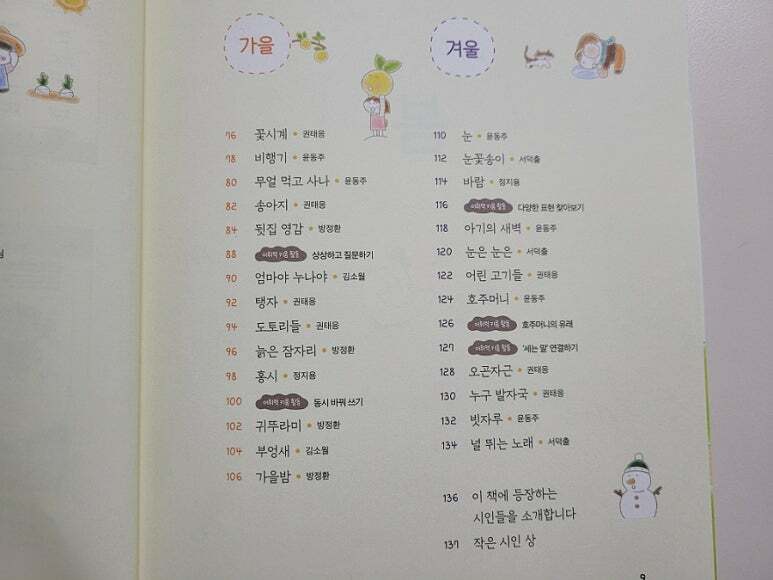 가을
76 꽃시계 • 권태응
78 비행기 • 윤동주
80 무얼 먹고 사나 • 윤동주
82 송아지 • 권태응
84 뒷집 영감 • 방정환
88 어휘력 키움 활동 상상하고 질문하기
90 엄마야 누나야 • 김소월
92 탱자 • 권태응
94 도토리들 • 권태응
96 늙은 잠자리 • 방정환
98 홍시 • 정지용
100 어휘력 키움 활동 동시 바꿔 쓰기
102 귀뚜라미 • 방정환
104 부엉새 • 김소월
106 가을밤 • 방정환
겨울
110 눈 • 윤동주
112 눈꽃송이 • 서덕출
114 바람 • 정지용
116 어휘력 키움 활동 다양한 표현 찾아보기
118 아기의 새벽 • 윤동주
120 눈은 눈은 • 서덕출
122 어린 고기들 • 권태응
124 호주머니 • 윤동주
126 어휘력 키움 활동 호주머니의 유래
127 어휘력 키움 활동 '세는 말' 연결하기
128 오곤자근 • 권태응
130 누구 발자국 • 권태응
132 빗자루 • 윤동주
134 널 뛰는 노래 • 서덕출
136 이 책에 등장하는
시인들을 소개합니다
137 작은 시인 상
9